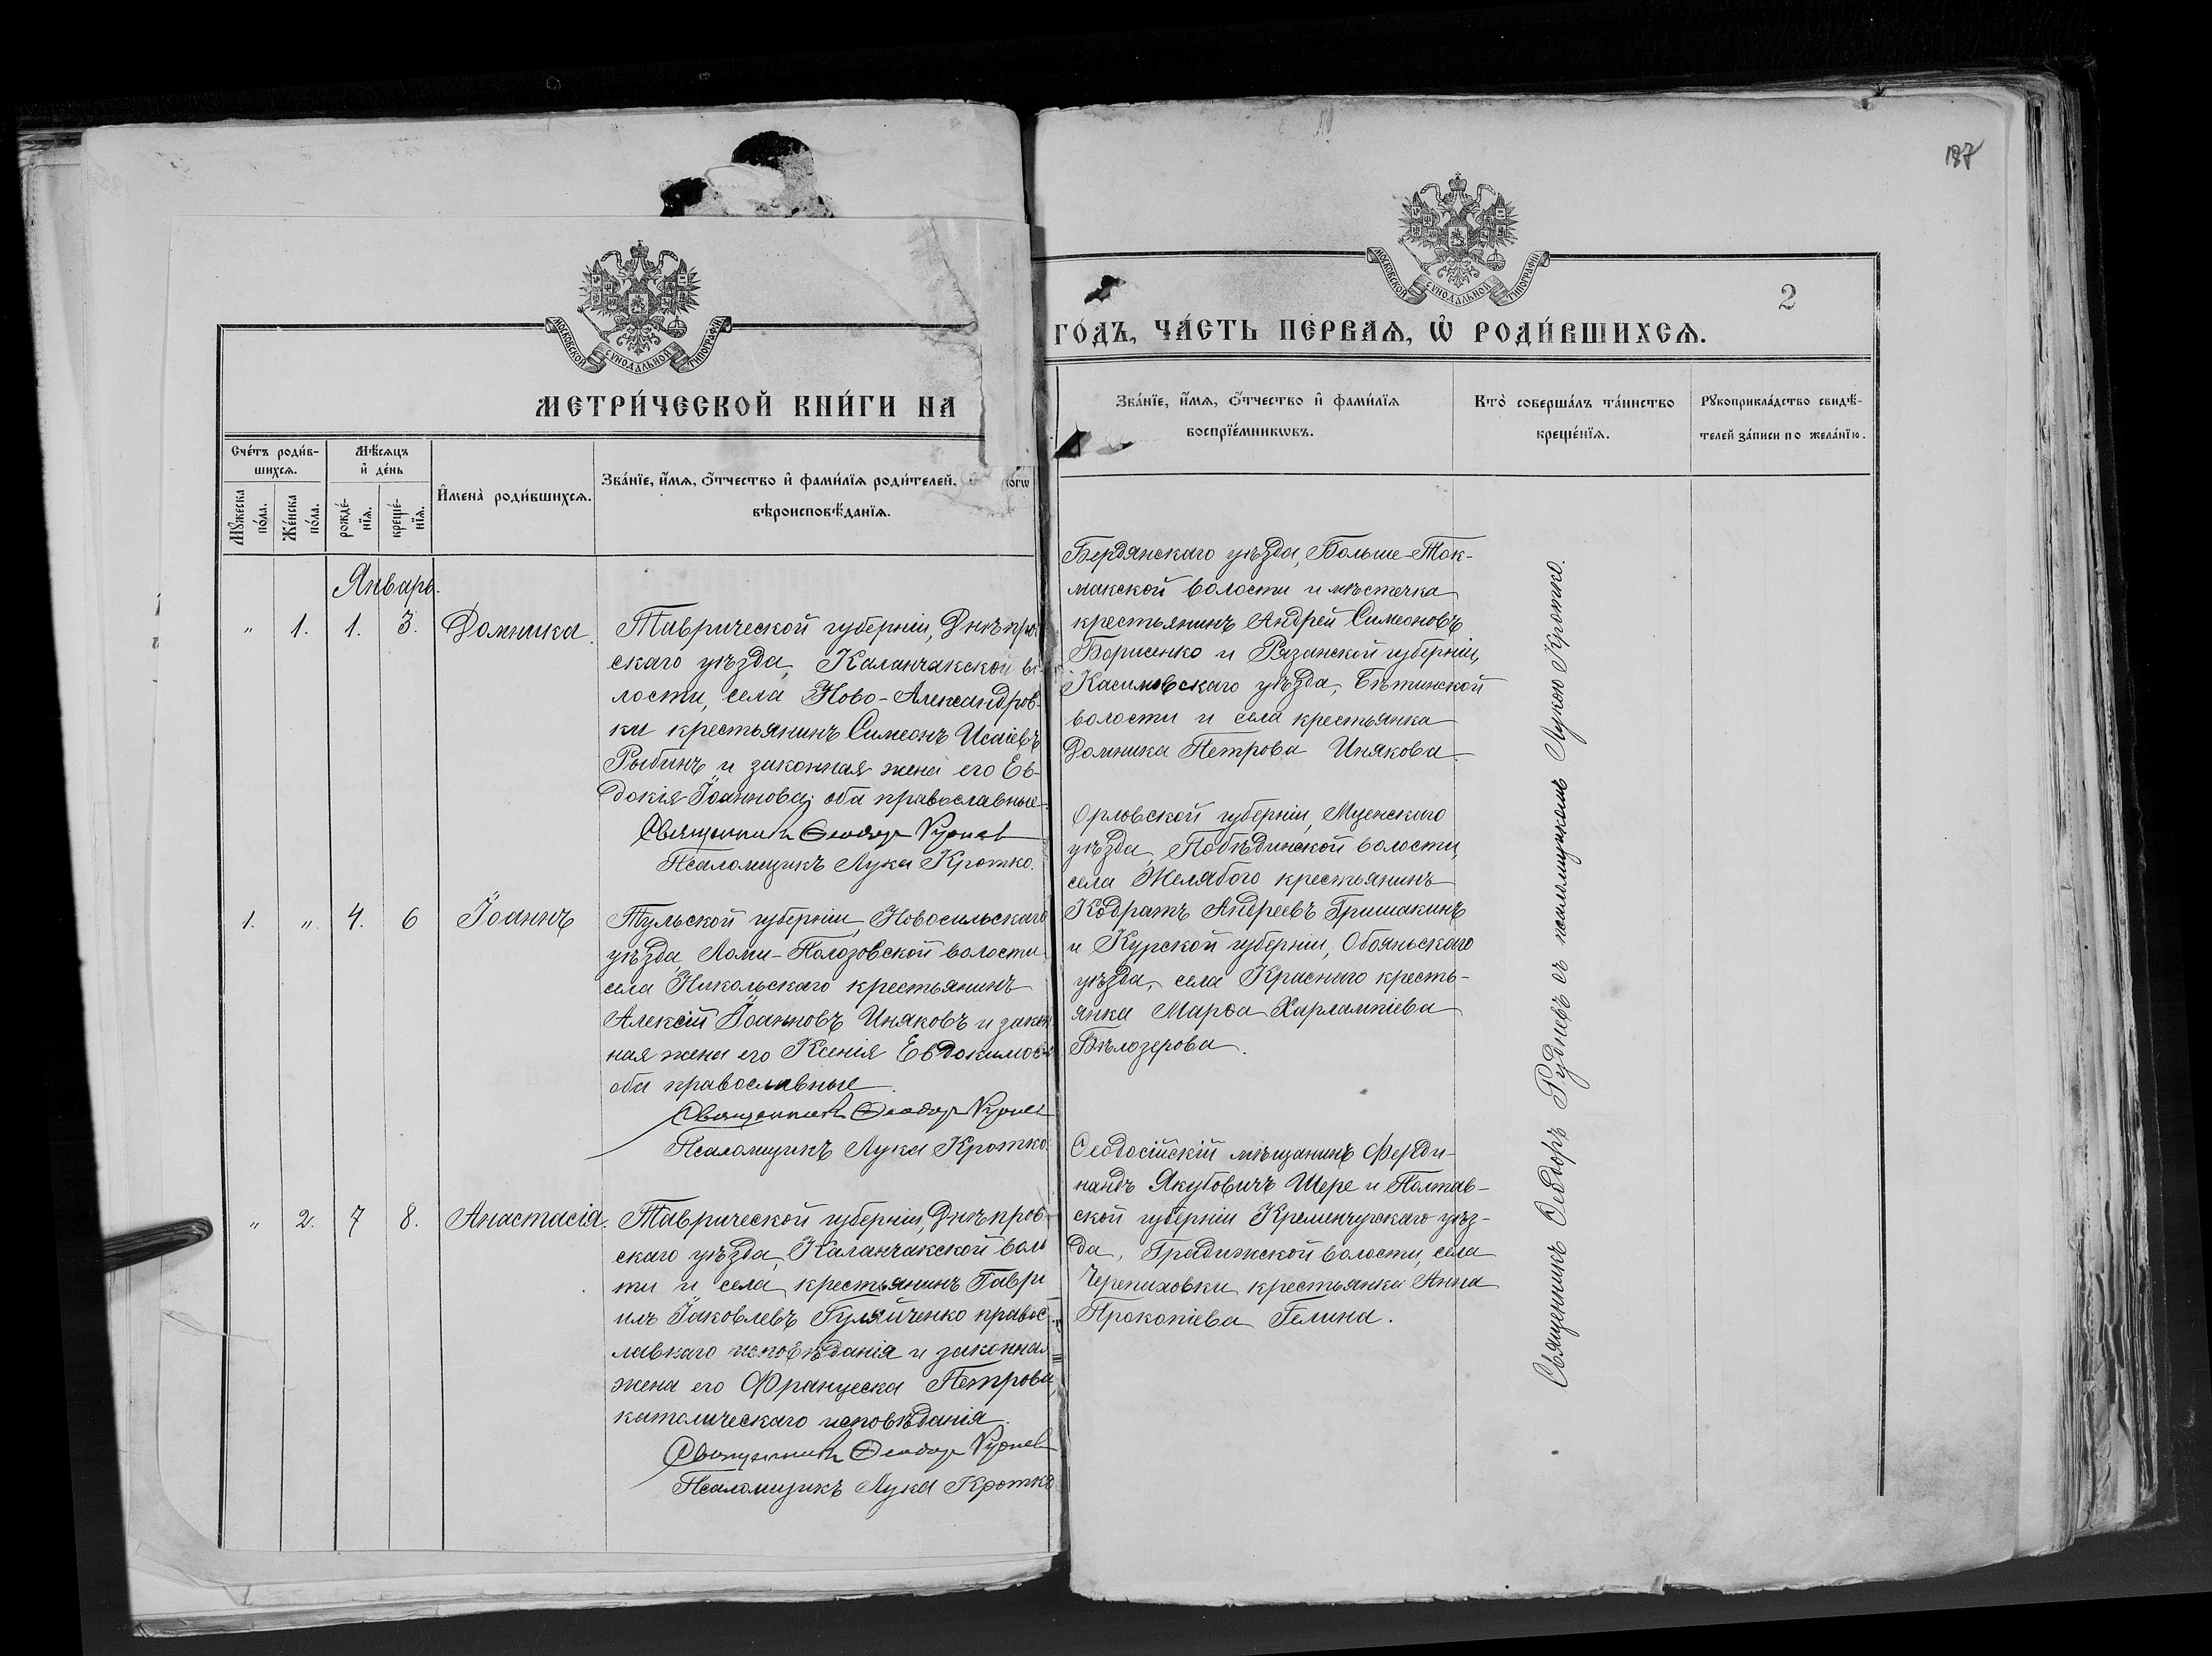 187
МОСКОВСКОЙ СѴНОДАЛЬНОЙ ТИПОГРАФІИ
МЕТРИ́ЧЕСКОЙ КНИ́ГИ НА
Сче́тъ роди́в-
шихсѧ.
Мꙋ́жеска
по́ла.
Же́нска
по́ла.
Мѣ́сѧцъ
и҆ де́нь
рожде́-
нїѧ.
креще́-
нїѧ.
И҆мена̀ роди́вшихсѧ.
Зва́нїе, и҆́мѧ, ѻ҆́тчество и҆ фами́лїѧ роди́телей,
вѣроисповѣ́данїѧ.
Январь.
" 1. 1. 3. Домника.
Таврической губерніи, Днѣпров
скаго уѣзда, Каланчакской во
лости, села Ново-Александров-
ки крестьянинъ Симеонъ Исаіевъ
Рыбинъ и законная жена его Ев-
докія Іоаннова, оба православные.
Священникъ Ѳеодоръ Руднев
Псаломщикъ Лука Кротко.
1. " 4. 6 Іоаннъ
Тульской губерніи, Новосильскаго
уѣзда, Ломи-Полозовской волости
села Никольскаго крестьянинъ
Алексій Іоанновъ Иняковъ и закон
ная жена его Ксенія Евдокимова
оба православные.
Священникъ Ѳеодоръ Руднев
Псаломщикъ Лука Кротко.
" 2. 7 8. Анастасія.
Таврической губерніи, Днѣпров-
скаго уѣзда, Каланчакской воло
ти и села крестьянинъ Гаври
илъ Іаковлевъ Гуляйченко правос
лавнаго исповѣданія и законная
жена его Франческа Петрова,
католическаго исповѣданія.
Священникъ Ѳеодоръ Руднев
Псаломщикъ Лука Кротко
МОСКОВСКОЙ СѴНОДАЛЬНОЙ ТИПОГРАФІИ
2
ГО́ДЪ, ЧА́СТЬ ПЕ́РВАѦ, Ѡ҆ РОДИ́ВШИХСѦ.
Зва́нїе, и҆́мѧ, ѻ҆́тчество и҆ фами́лїѧ
воспрїе́мникѡвъ.
Кто̀ соверша́лъ та́инство
креще́нїѧ.
Рꙋкоприкла́дство свидѣ́-
телей за́писи по жела́нїю.
Бердянскаго уѣзда, Больше-Ток-
макской волости и мѣстечка
крестьянинъ Андрей Симеоновъ
Борисенко и Рязанской губерніи,
Касимовскаго уѣзда, Бѣтинской
волости и села крестьянка
Домника Петрова Инякова.
Орловской губерніи, Мценскаго
уѣзда, Побѣдинской волости,
села Желябого крестьянинъ
Кодратъ Андреевъ Гришакинъ
и Курской губерніи, Обояньскаго
уѣзда, села Краснаго кресть-
янка Марѳа Харлампіева
Бѣлозерова.
Ѳеодосійскій мѣщанинъ Ферди-
нандъ Якубовичъ Шере и Полтав-
ской губерніи Кременчугскаго уѣз-
да, Градижской волости, села
Черепиховки крестьянка Анна
Прокопіева Гелина.
Священникъ Ѳеодоръ Рудневъ съ псаломщикомъ Лукою Кротко.